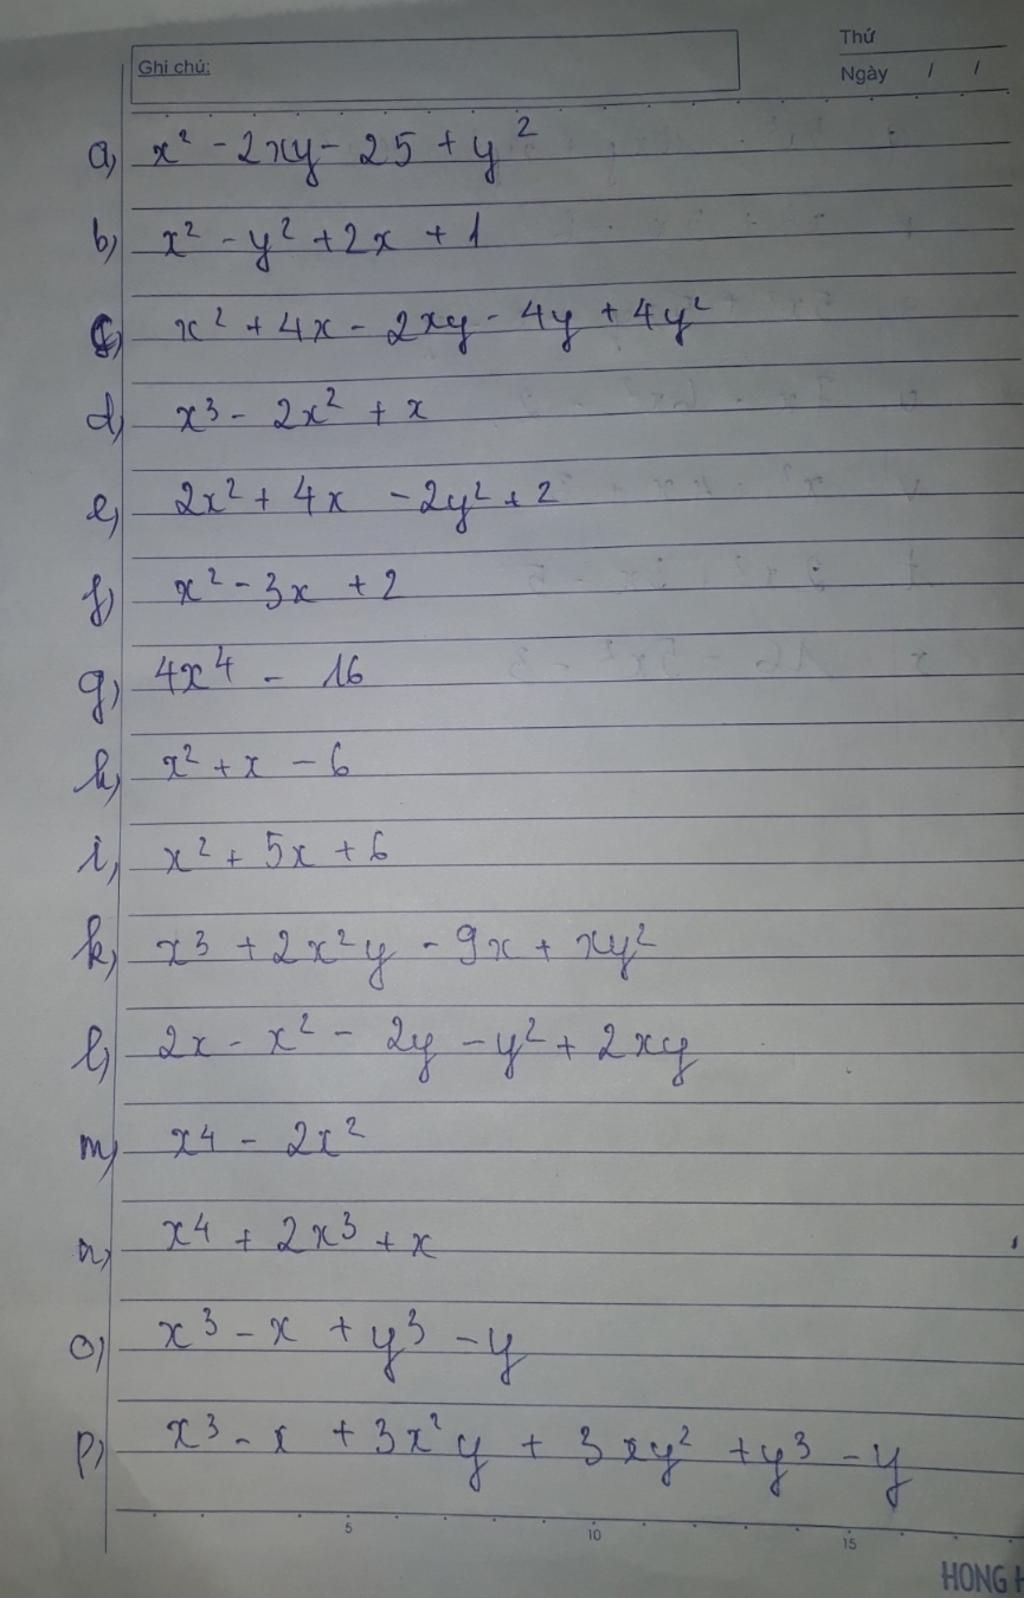 Ghi chú:
Thứ
Ngày / /
a) x² - 2xy - 25 + y²
b) x² - y² + 2x + 1
c) x² + 4x - 2xy - 4y + 4y²
d) x³ - 2x² + x
e) 2x² + 4x - 2y² + 2
f) x² - 3x + 2
g) 4x⁴ - 16
h) x² + x - 6
i) x² + 5x + 6
k) x³ + 2x²y - 9x + xy²
l) 2x - x² - 2y - y² + 2xy
m) x⁴ - 2x²
n) x⁴ + 2x³ + x
o) x³ - x + y³ - y
p) x³ - x + 3x²y + 3xy² + y³ - y
5 10 15
HONG H